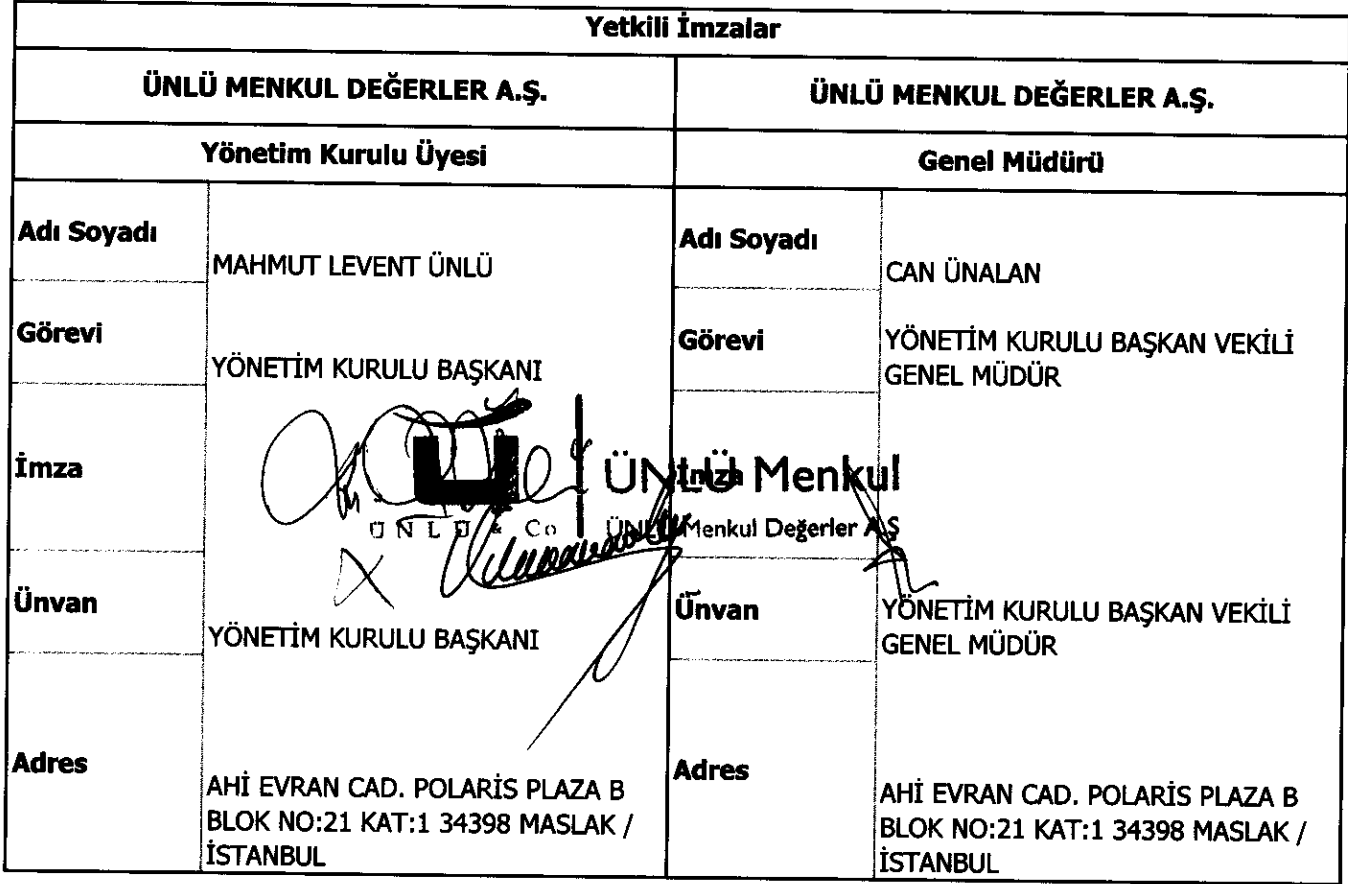 Yetkili İmzalar
ÜNLÜ MENKUL DEĞERLER A.Ş.
ÜNLÜ MENKUL DEĞERLER A.Ş.
Yönetim Kurulu Üyesi
Genel Müdürü
Adı Soyadı
MAHMUT LEVENT ÜNLÜ
Adı Soyadı
CAN ÜNALAN
Görevi
YÖNETİM KURULU BAŞKANI
Görevi
YÖNETİM KURULU BAŞKAN VEKİLİ
GENEL MÜDÜR
İmza
Ü
ÜNLÜ & Co
ÜNLÜ Menkul
ÜNLÜ Menkul Değerler A.Ş
İmza
Ünvan
YÖNETİM KURULU BAŞKANI
Ünvan
YÖNETİM KURULU BAŞKAN VEKİLİ
GENEL MÜDÜR
Adres
AHİ EVRAN CAD. POLARİS PLAZA B
BLOK NO:21 KAT:1 34398 MASLAK /
İSTANBUL
Adres
AHİ EVRAN CAD. POLARİS PLAZA B
BLOK NO:21 KAT:1 34398 MASLAK /
İSTANBUL